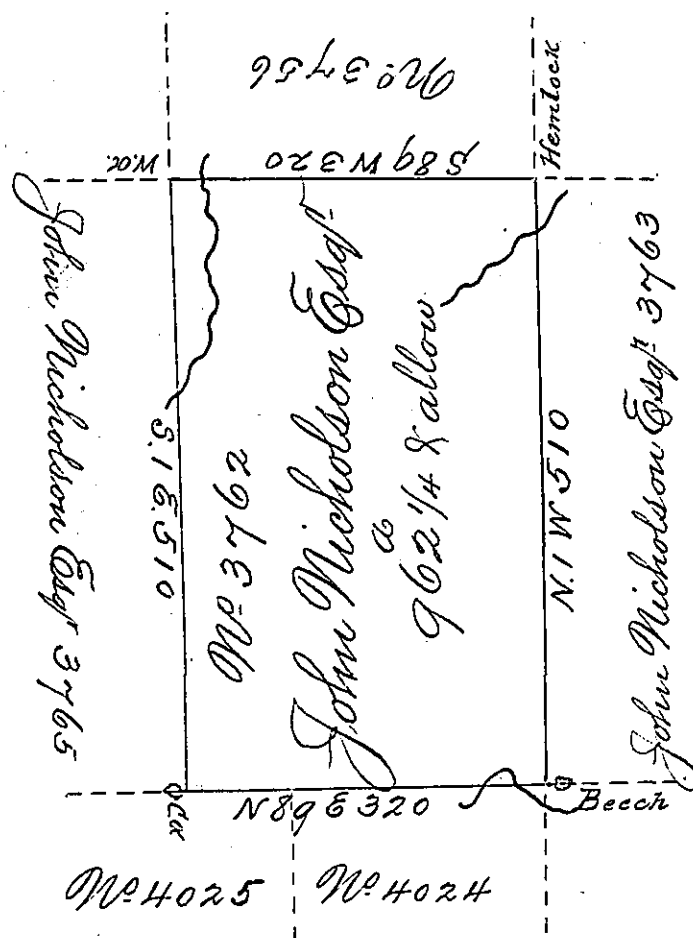 No 3756
S89 W 320
W.O.
Hemlock
John Nicholson Esqr 3765
S.1 E.510
No 3762
John Nicholson Esqr
a
962 1/4 & allow
N.1 W 510
John Nicholson Esqr 3763
N 89 E 320
Beech
No 4025
No 4024